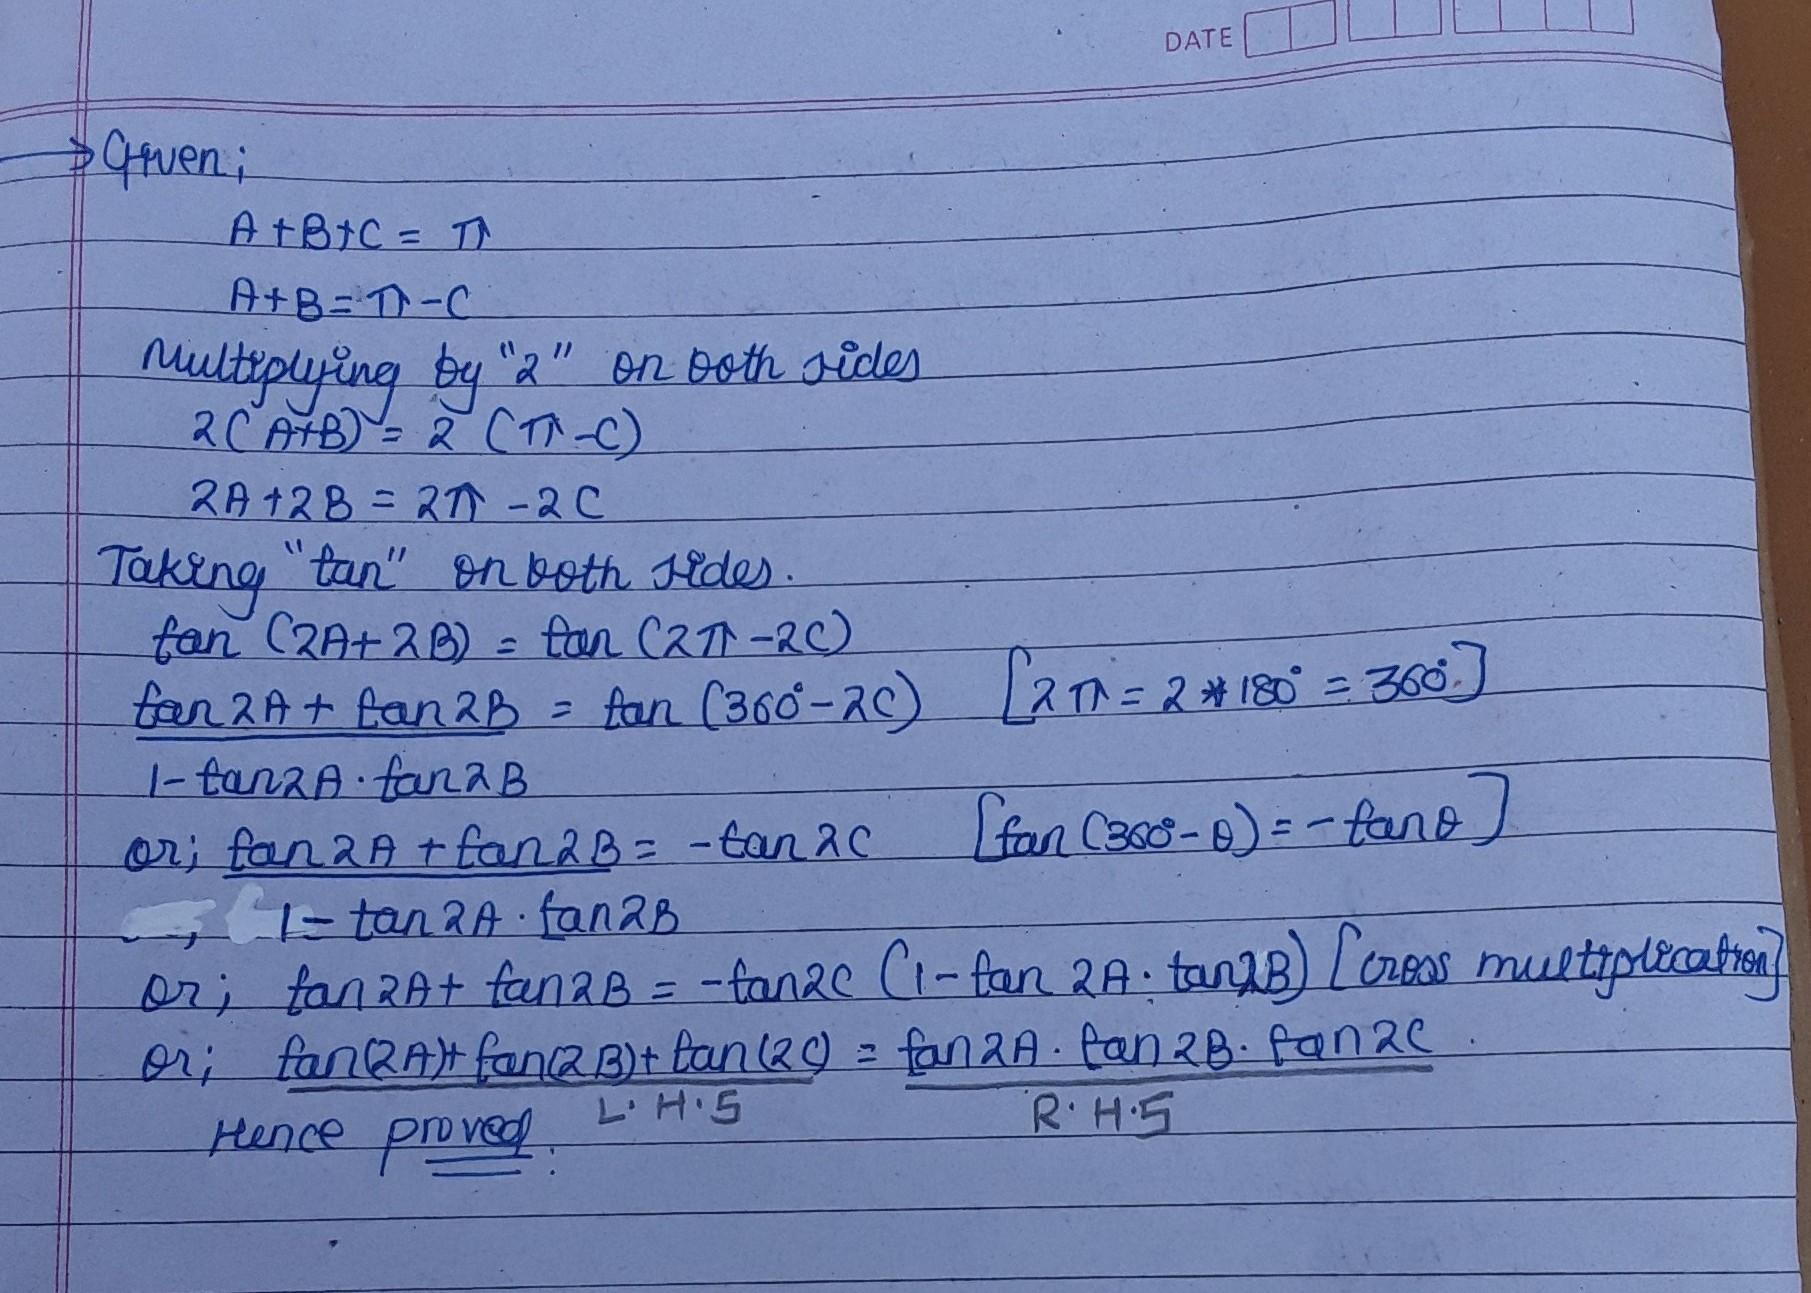 DATE
Given;
A+B+C = π
A+B = π-C
Multiplying by "2" on both sides
2(A+B) = 2 (π-C)
2A+2B = 2π-2C
Taking "tan" on both sides.
tan (2A+2B) = tan (2π-2C)
tan2A + tan2B = tan (360°-2C) [2π = 2*180° = 360°]
1-tan2A·tan2B
or; tan2A + tan2B = -tan2C [tan (360°-θ) = -tanθ]
1-tan2A·tan2B
or; tan2A + tan2B = -tan2C (1-tan 2A·tan2B) [cross multiplication]
or; tan(2A)+tan(2B)+tan(2C) = tan2A·tan2B·tan2C.
L.H.S R.H.S
Hence proved.